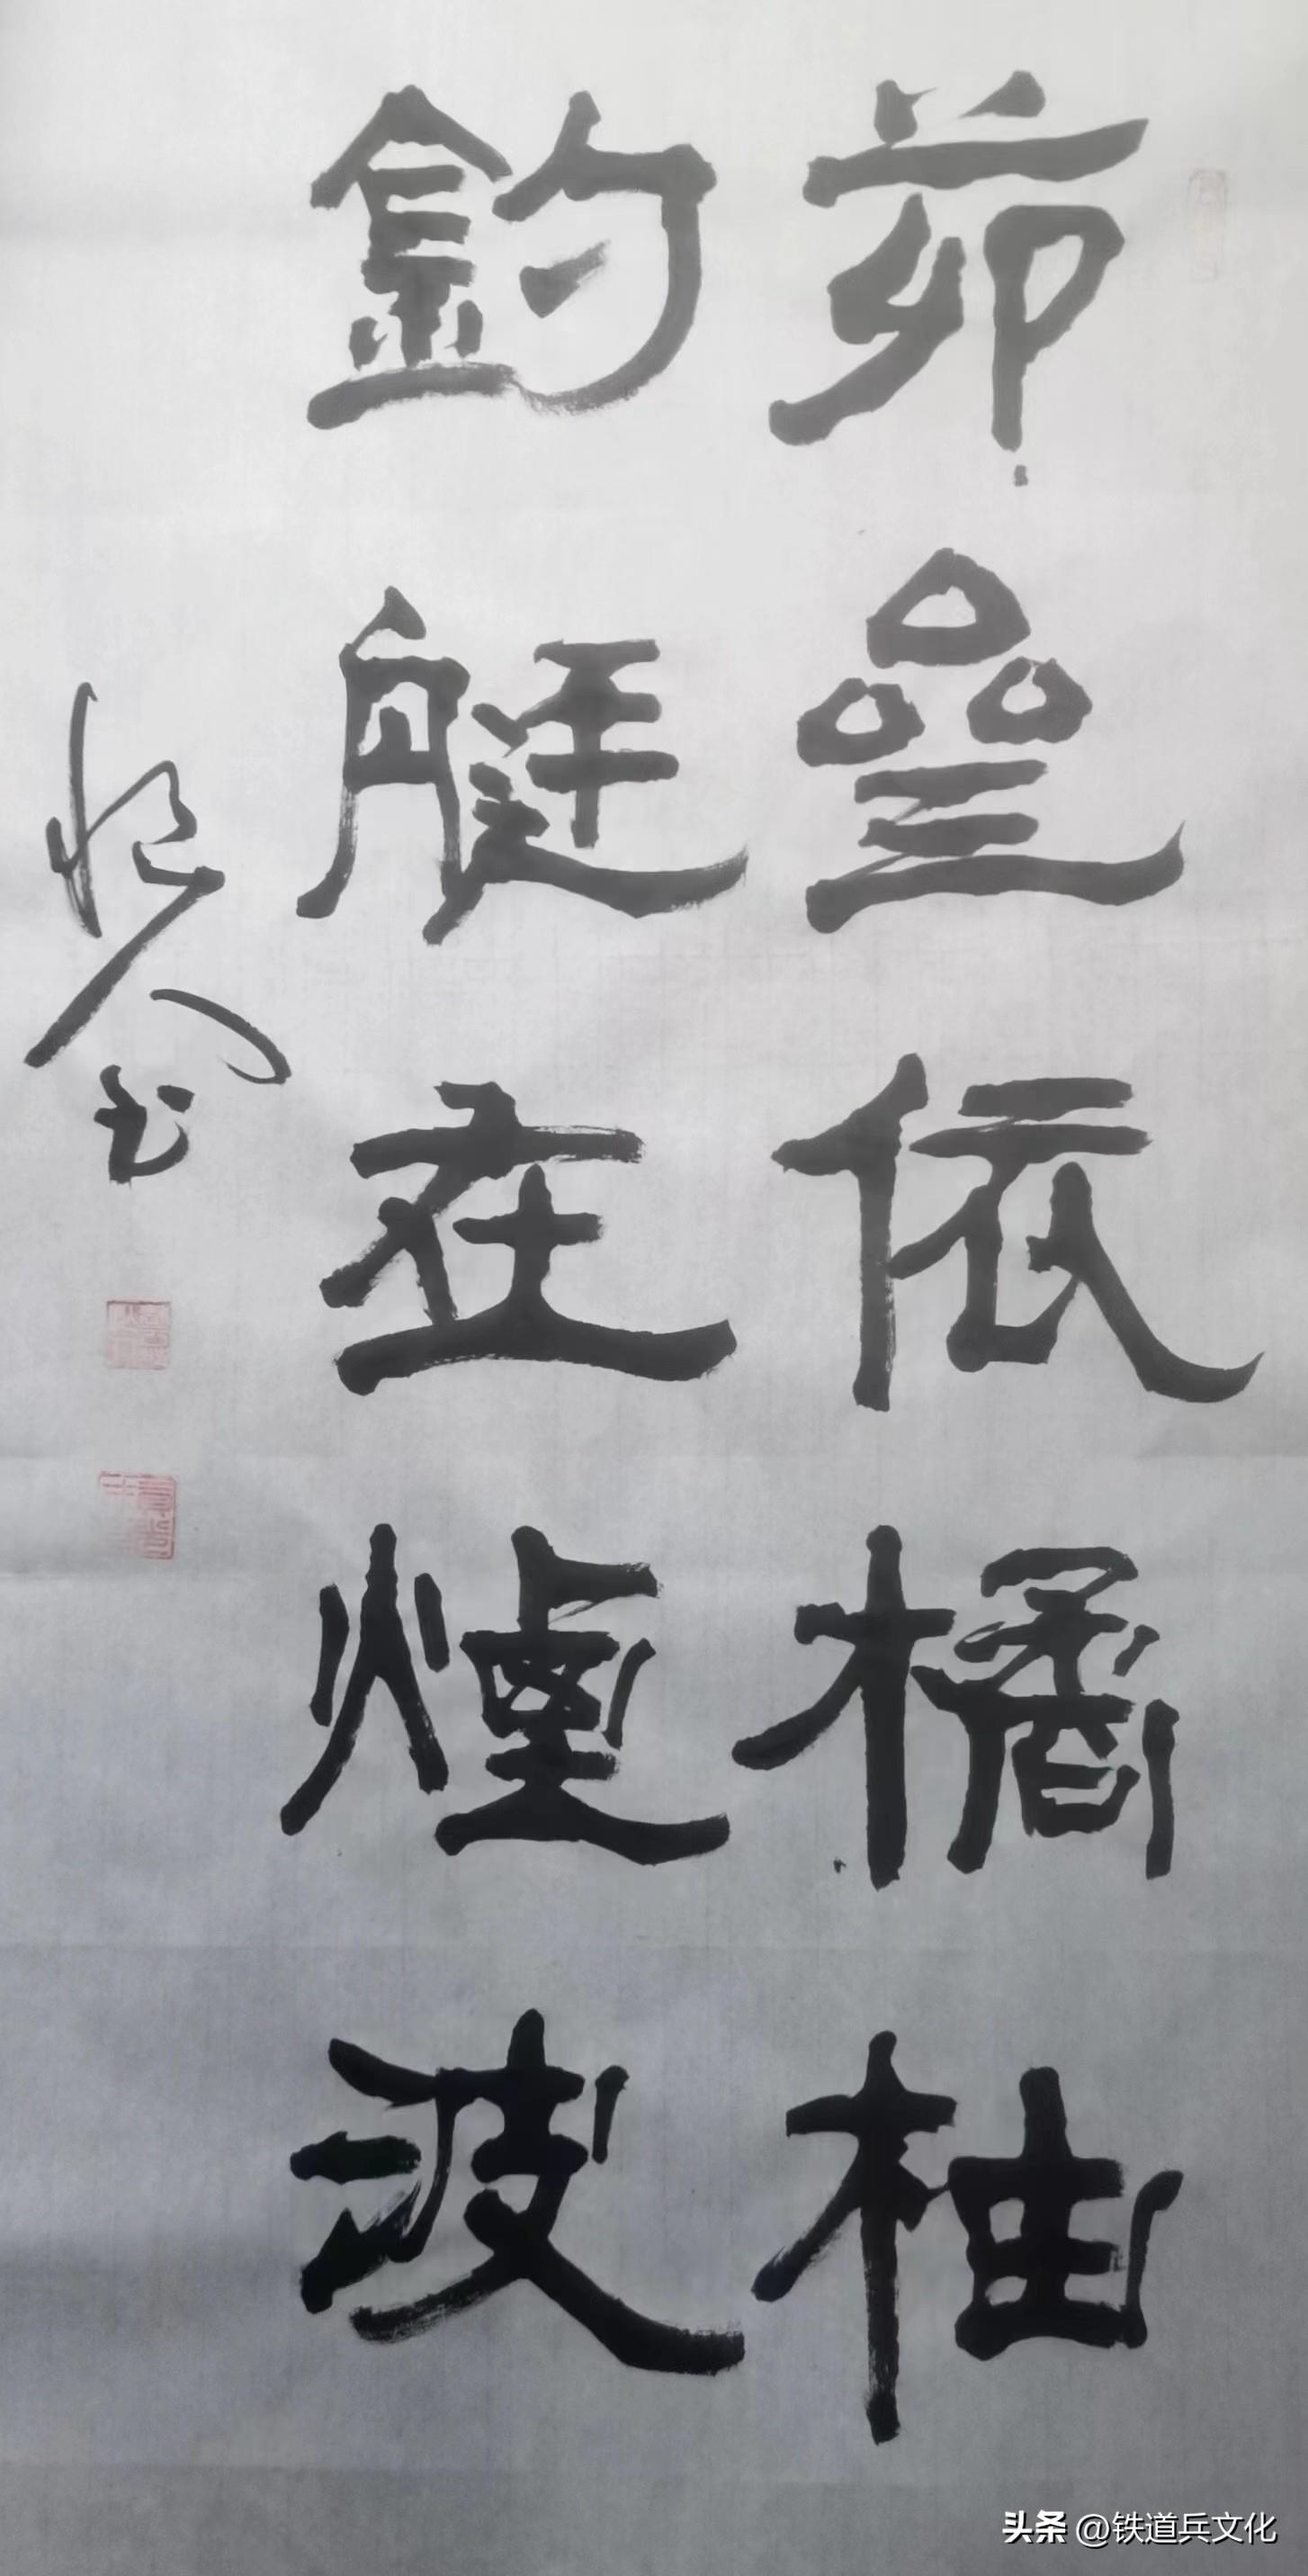 茆壘依橘柚
釣艇在煙波
書
头条 @铁道兵文化